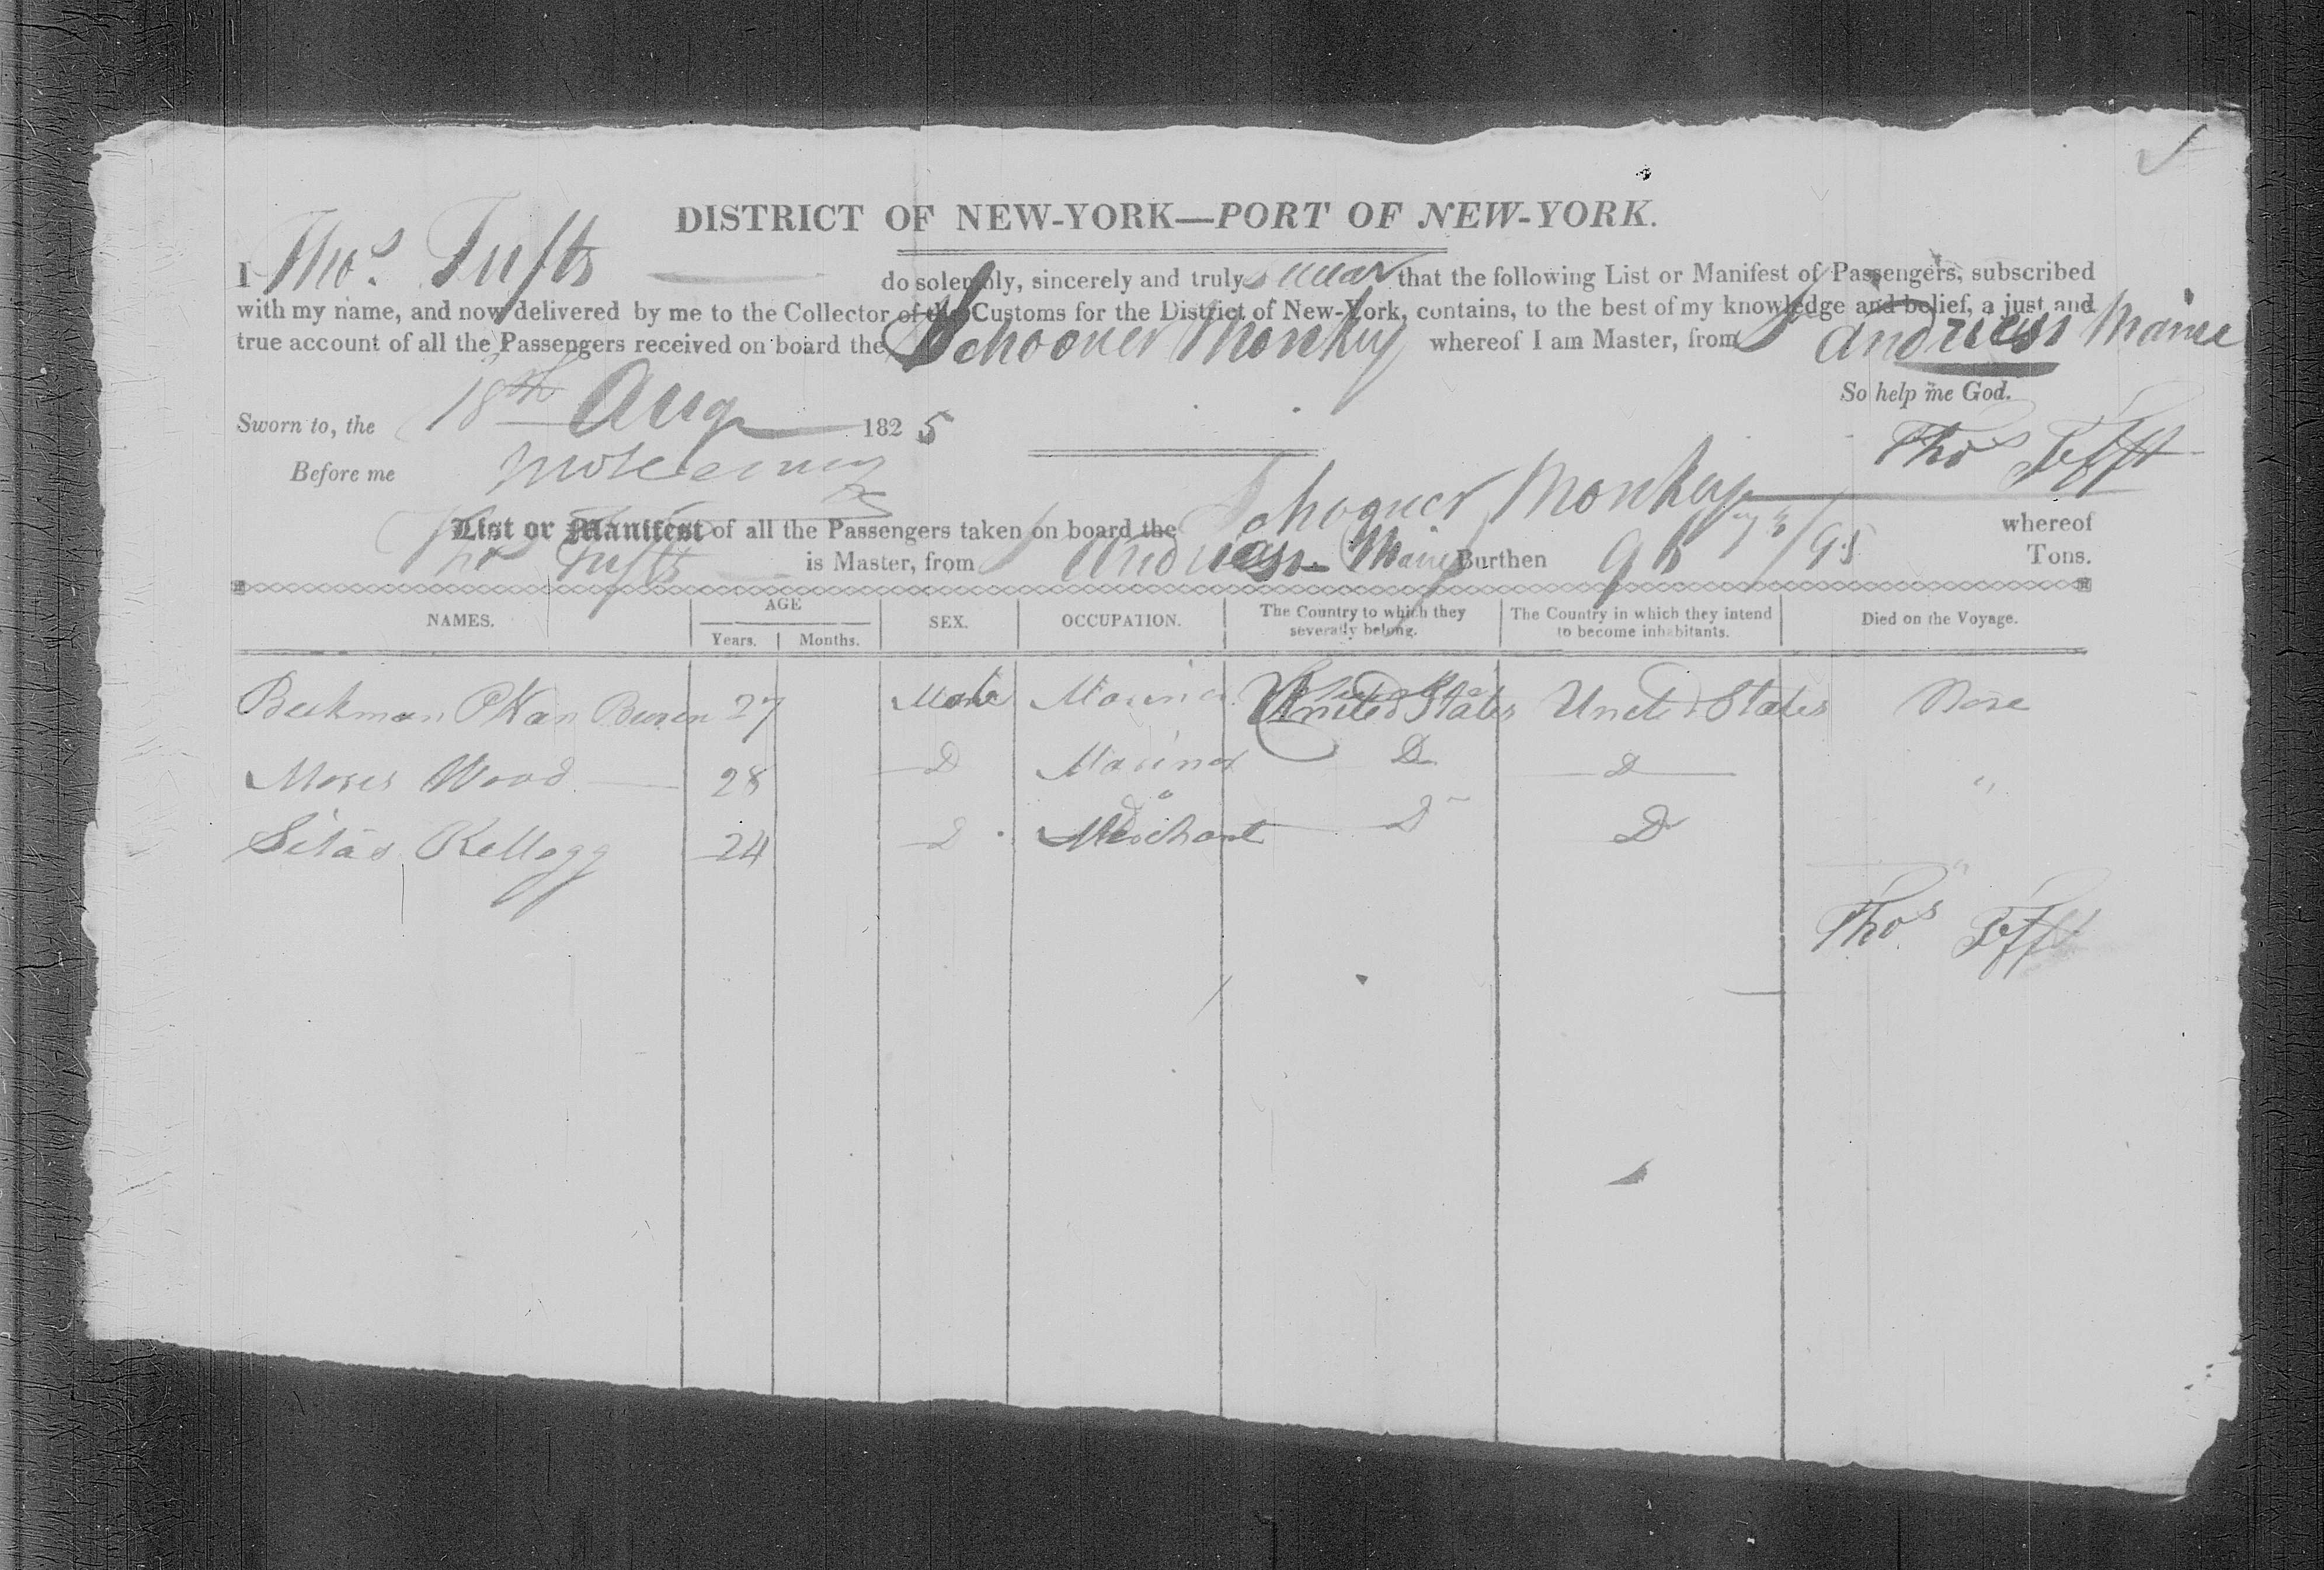 DISTRICT OF NEW-YORK—PORT OF NEW-YORK.
I Thos. Tufts do solemnly, sincerely and truly swear that the following List or Manifest of Passengers, subscribed
with my name, and now delivered by me to the Collector of the Customs for the District of New-York, contains, to the best of my knowledge and belief, a just and
true account of all the Passengers received on board the Schooner Monkey whereof I am Master, from St Andreass Maine
So help me God.
Sworn to, the 18th Aug 1825
Thos Tefft
Before me
List or Manifest of all the Passengers taken on board the Schooner Monkey whereof
Thos Tufts is Master, from St Andreass Maine Burthen Tons.
NAMES. AGE SEX. OCCUPATION. The Country to which they severally belong. The Country in which they intend to become inhabitants. Died on the Voyage.
Years. Months.
Beekman Van Buren 27 Male Mariner United States United States None
Moses Wood 28 D Mariner D D "
Silas Kellogg 24 D Merchant D D "
Thos Tefft